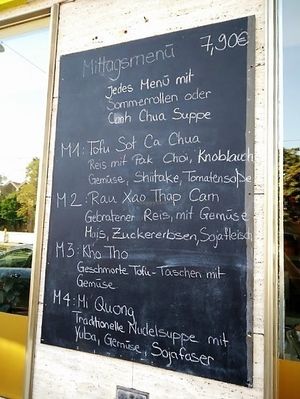 Mittagsmenü 7,90€
Jedes Menü mit
Sommerrollen oder
Canh Chua Suppe
M1: Tofu Sot Ca Chua
Reis mit Pak Choi, Knoblauch
Gemüse, Shiitake, Tomatensoße
M2: Rau Xao Thap Cam
Gebratener Reis, mit Gemüse
Mais, Zuckererbsen, Sojafleisch
M3: Kho Tho
Geschmorte Tofu-Taschen mit
Gemüse
M4: Mi Quong
Traditionelle Nudelsuppe mit
Yuba, Gemüse, Sojafaser